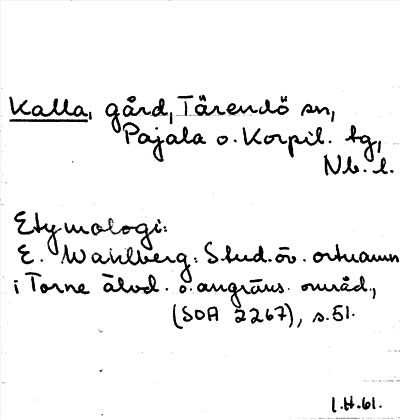 Kalla, gård, Tärendö sn,
Pajala o. Korpil. tg,
Nb. l.
Etymologi:
E. Wahlberg: Stud. öv. ortnamn
i Torne älvd. o. angräns. områd.,
(SOA 2267), s. 51.
I.H.61.